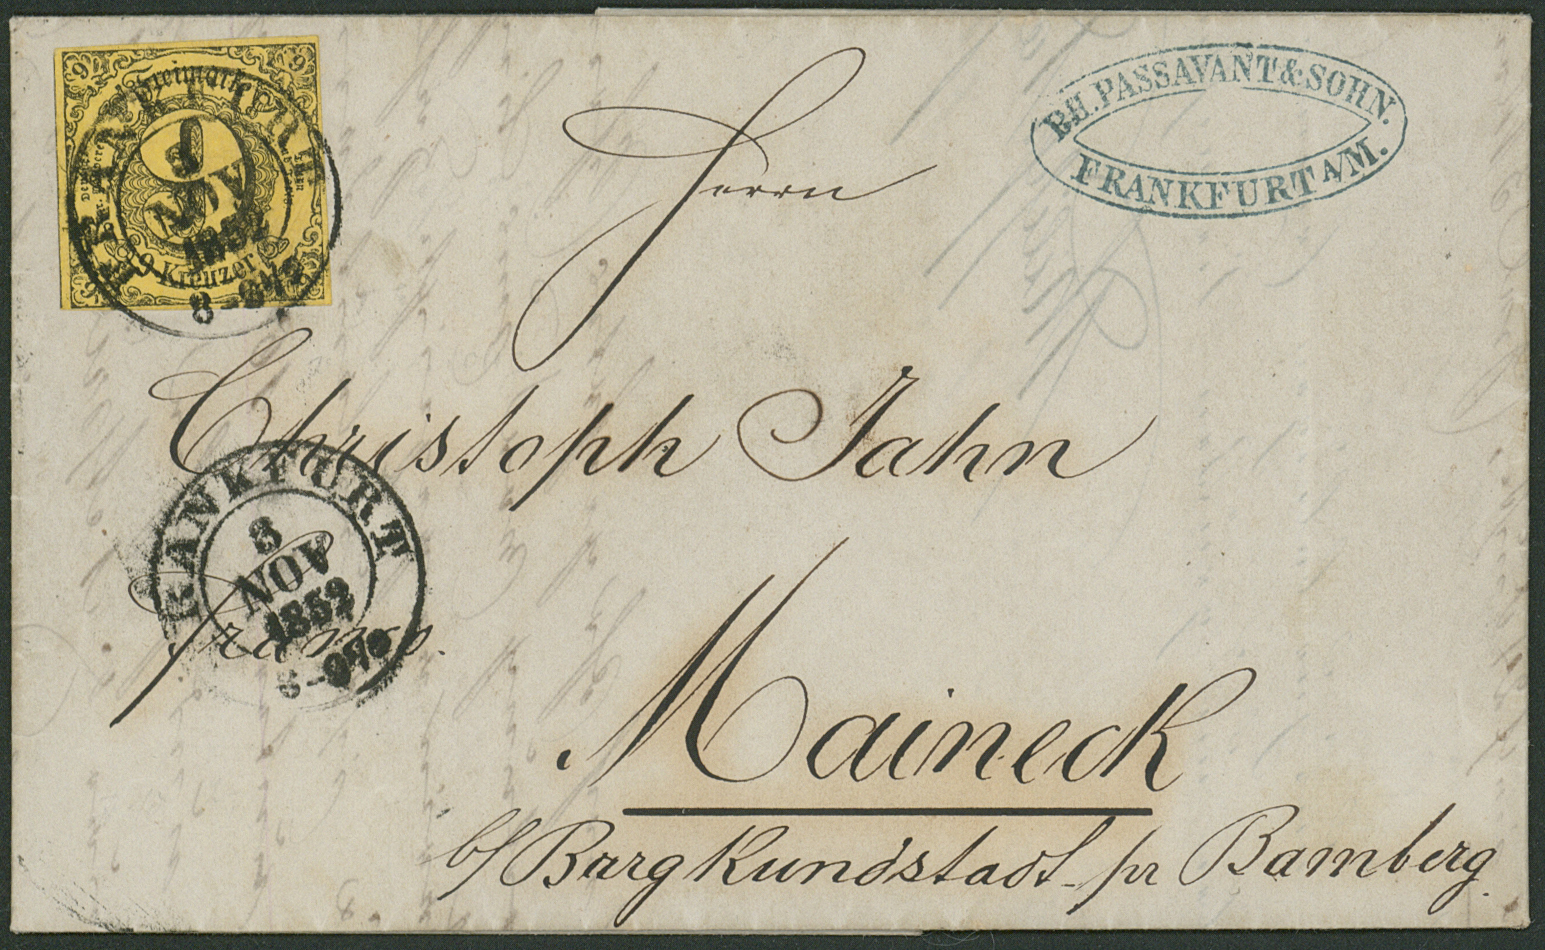 9 9
Freimarke
9
Kreuzer
FRANKFURT
8
NOV
1852
8-9½
BH. PASSAVANT & SOHN.
FRANKFURT A/M.
Herrn
Christoph Jahn
FRANKFURT
8
NOV
1852
8-9½
franco.
Maineck
b/ Burgkundstadt pr Bamberg.